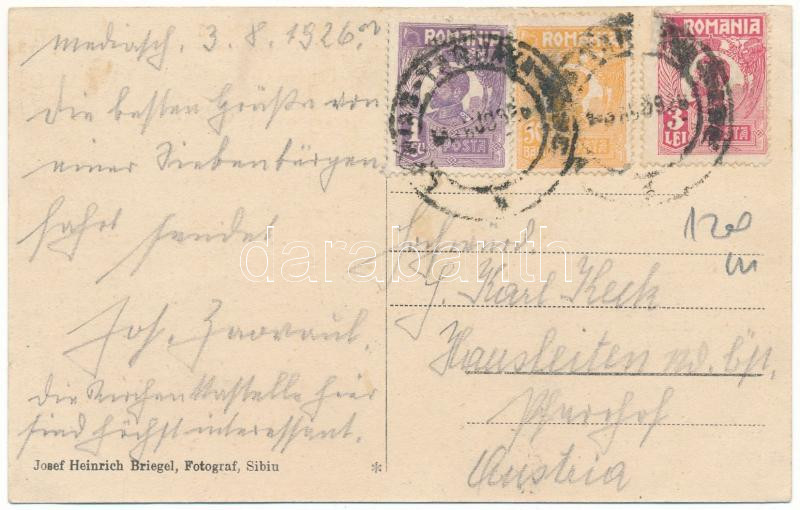 Mediasch, 3.8.1926.
Die besten Grüße von
einer Siebenbürgen
fahrt sendet
Joh.
Die Kirchenkastelle hier
sind höchst interessant.
Josef Heinrich Briegel, Fotograf, Sibiu
*
ROMANIA
1 LEU
POSTA
ROMANIA
50 BANI
POSTA
ROMANIA
3 LEI
POSTA
1200
Karl Keck
Hausleiten
Pfarrhof
Austria
darabanth